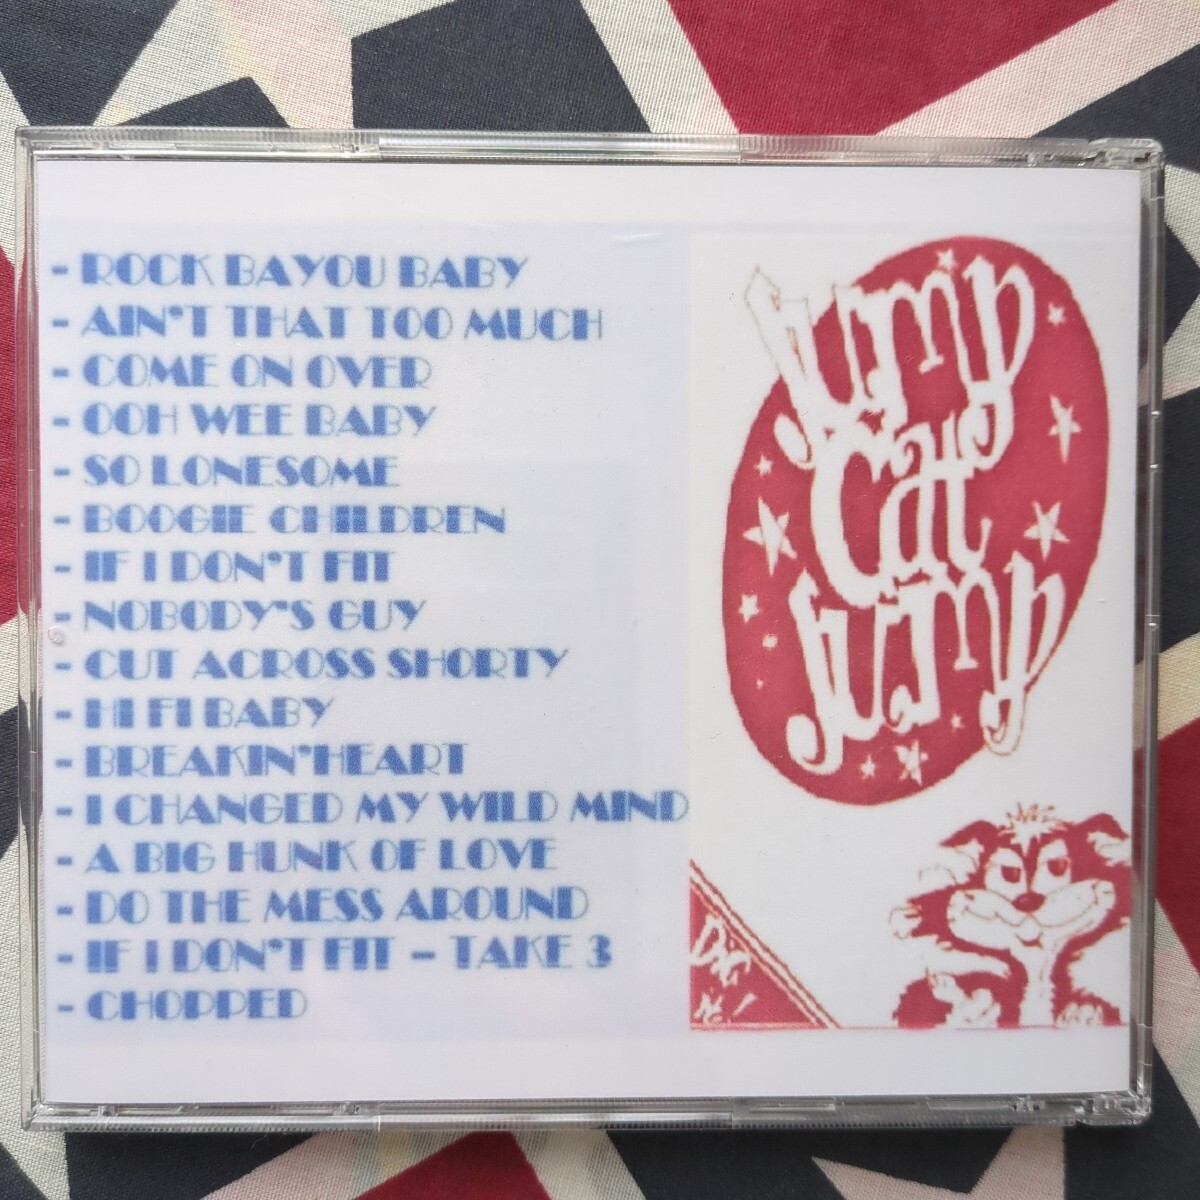 - ROCK BAYOU BABY
- AIN'T THAT TOO MUCH
- COME ON OVER
- OOH WEE BABY
- SO LONESOME
- BOOGIE CHILDREN
- IF I DON'T FIT
- NOBODY'S GUY
- CUT ACROSS SHORTY
- HI FI BABY
- BREAKIN'HEART
- I CHANGED MY WILD MIND
- A BIG HUNK OF LOVE
- DO THE MESS AROUND
- IF I DON'T FIT - TAKE 3
- CHOPPED
Jump
Cat
Jump